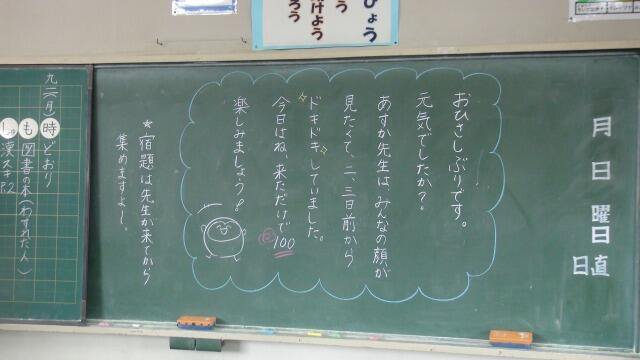 ひょう
う
げよう
ろう
月
日
曜日
日直
おひさしぶりです。
元気でしたか？
あすか先生は、みんなの顔が
見たくて、二、三日前から
ドキドキしていました。
今日はね、来ただけで
100
楽しみましょう！
＊宿題は先生が来てから
集めますよー。
九／二（月）
時 どおり
も 図書の本（わすれた人）
漢スキP.2